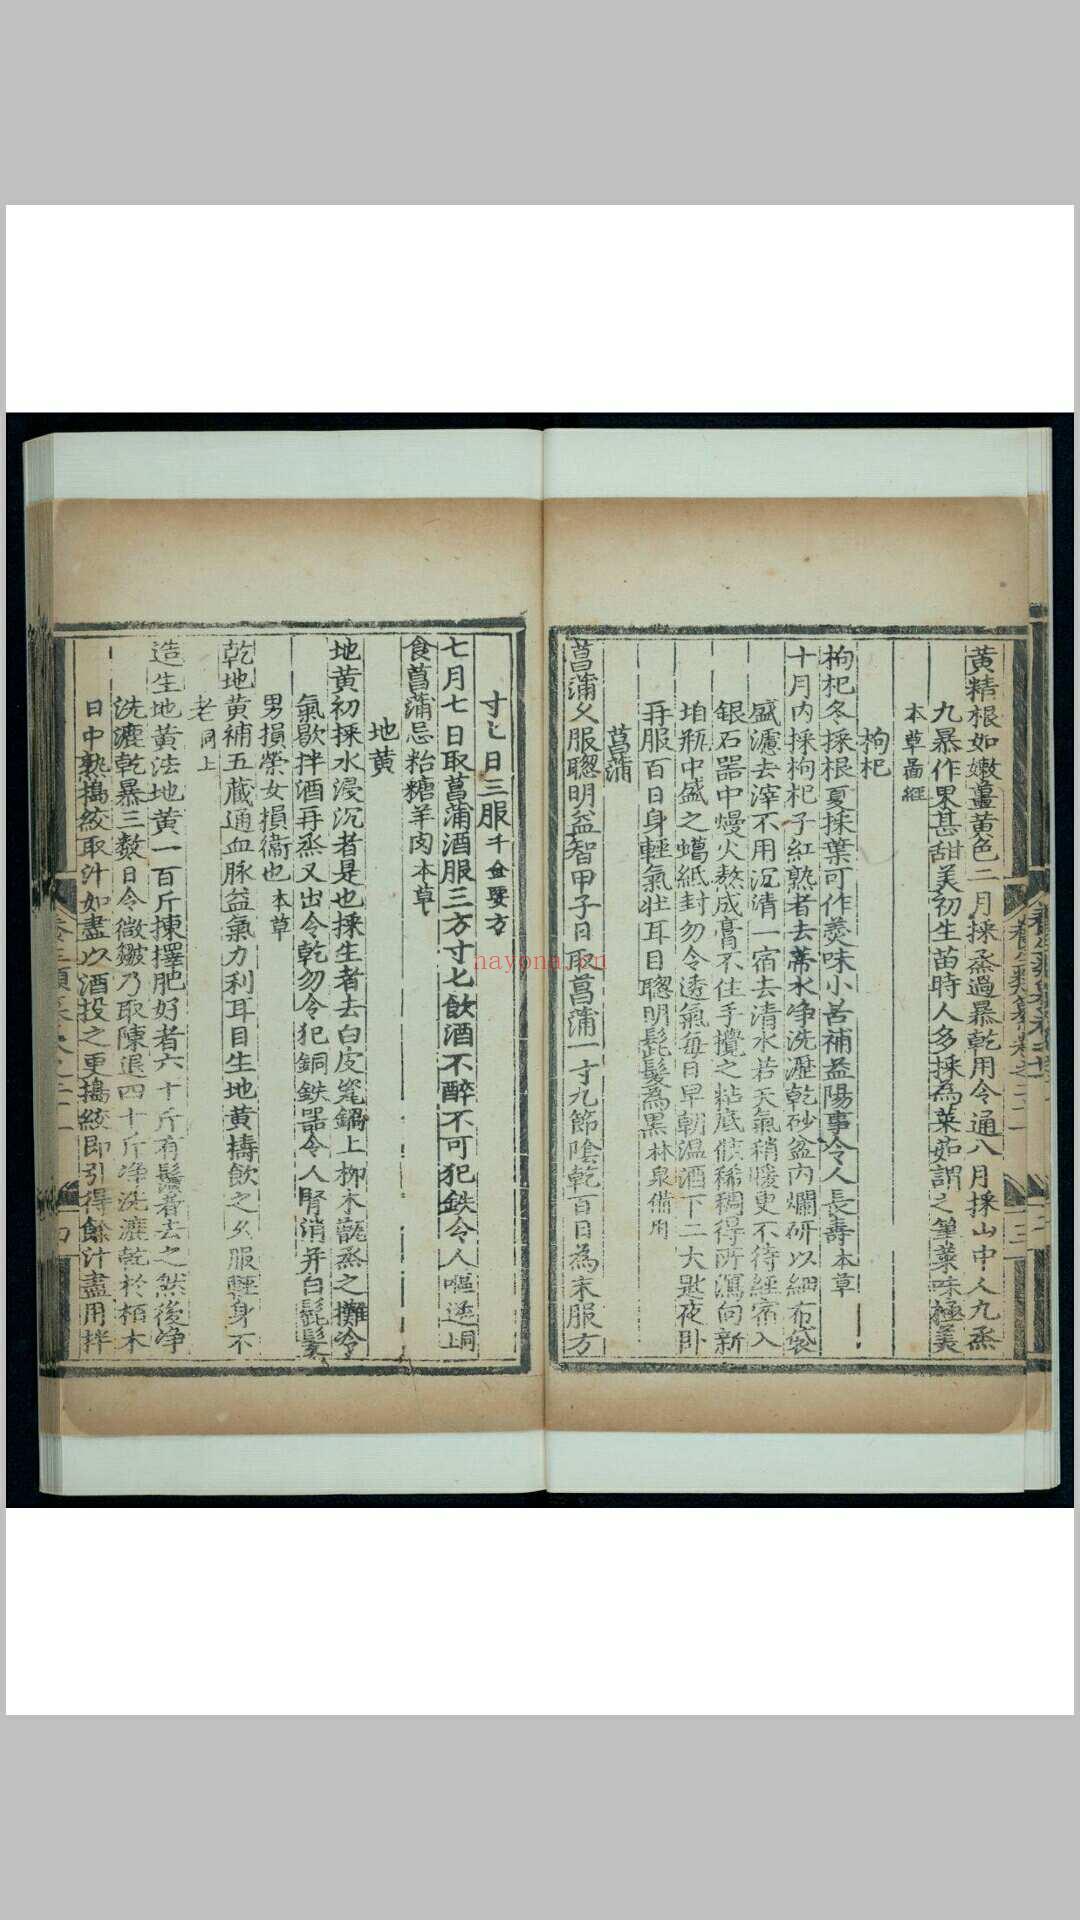 黄精根如嫩薑黄色二月採蒸過暴乾用今通八月採山中人九蒸
九暴作果甚甜美初生苗時人多採為菜茹謂之筆菜味極美
本草圖經
枸杞
枸杞冬採根夏採葉可作羮味小苦補益陽事令人長壽本草
十月内採枸杞子紅熟者去蒂水净洗瀝乾砂盆内爛研以細布袋
盛濾去滓不用沉清一宿去清水若天氣稍暖更不待經宿入
銀石器中慢火熬成膏不住手攪之粘底候稀稠得所瀉向新
垍瓶中盛之蠟紙封勿令透氣每日早朝温酒下二大匙夜卧
再服百日身輕氣壮耳目聰明髭髮為黒林泉備用
菖蒲
菖蒲久服聰明益智甲子日取菖蒲一寸九節陰乾百日為末服方
寸匕日三服千金要方
七月七日取菖蒲酒服三方寸匕飲酒不醉不可犯鉄令人嘔逆同上
食菖蒲忌粭糖羊肉本草
地黄
地黄初採水浸沉者是也採生者去白皮甆鍋上栁木甑蒸之攤冷
氣歇拌酒再蒸又出令乾勿令犯銅鉄器令人腎消并白髭髮
男損榮女損衛也本草
乾地黄補五蔵通血脉益氣力利耳目生地黄擣飲之久服輕身不
老同上
造生地黄法地黄一百斤揀擇肥好者六十斤有鬚者去之然後净
洗漉乾暴三數日令微皺乃取陳退四十斤净洗漉乾於栢木
日中熟搗絞取汁如盡以酒投之更搗絞即引得餘汁盡用拌
四
hayona.cn